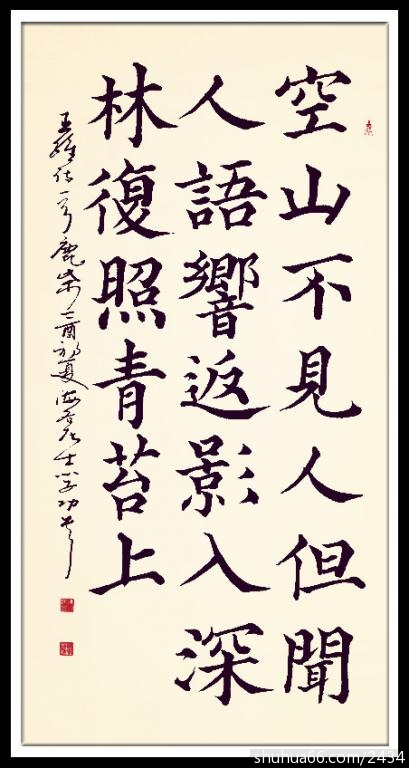 空山不見人但聞
人語響返影入深
林復照青苔上
王維詩一首鹿柴
shuhua66.com/2434